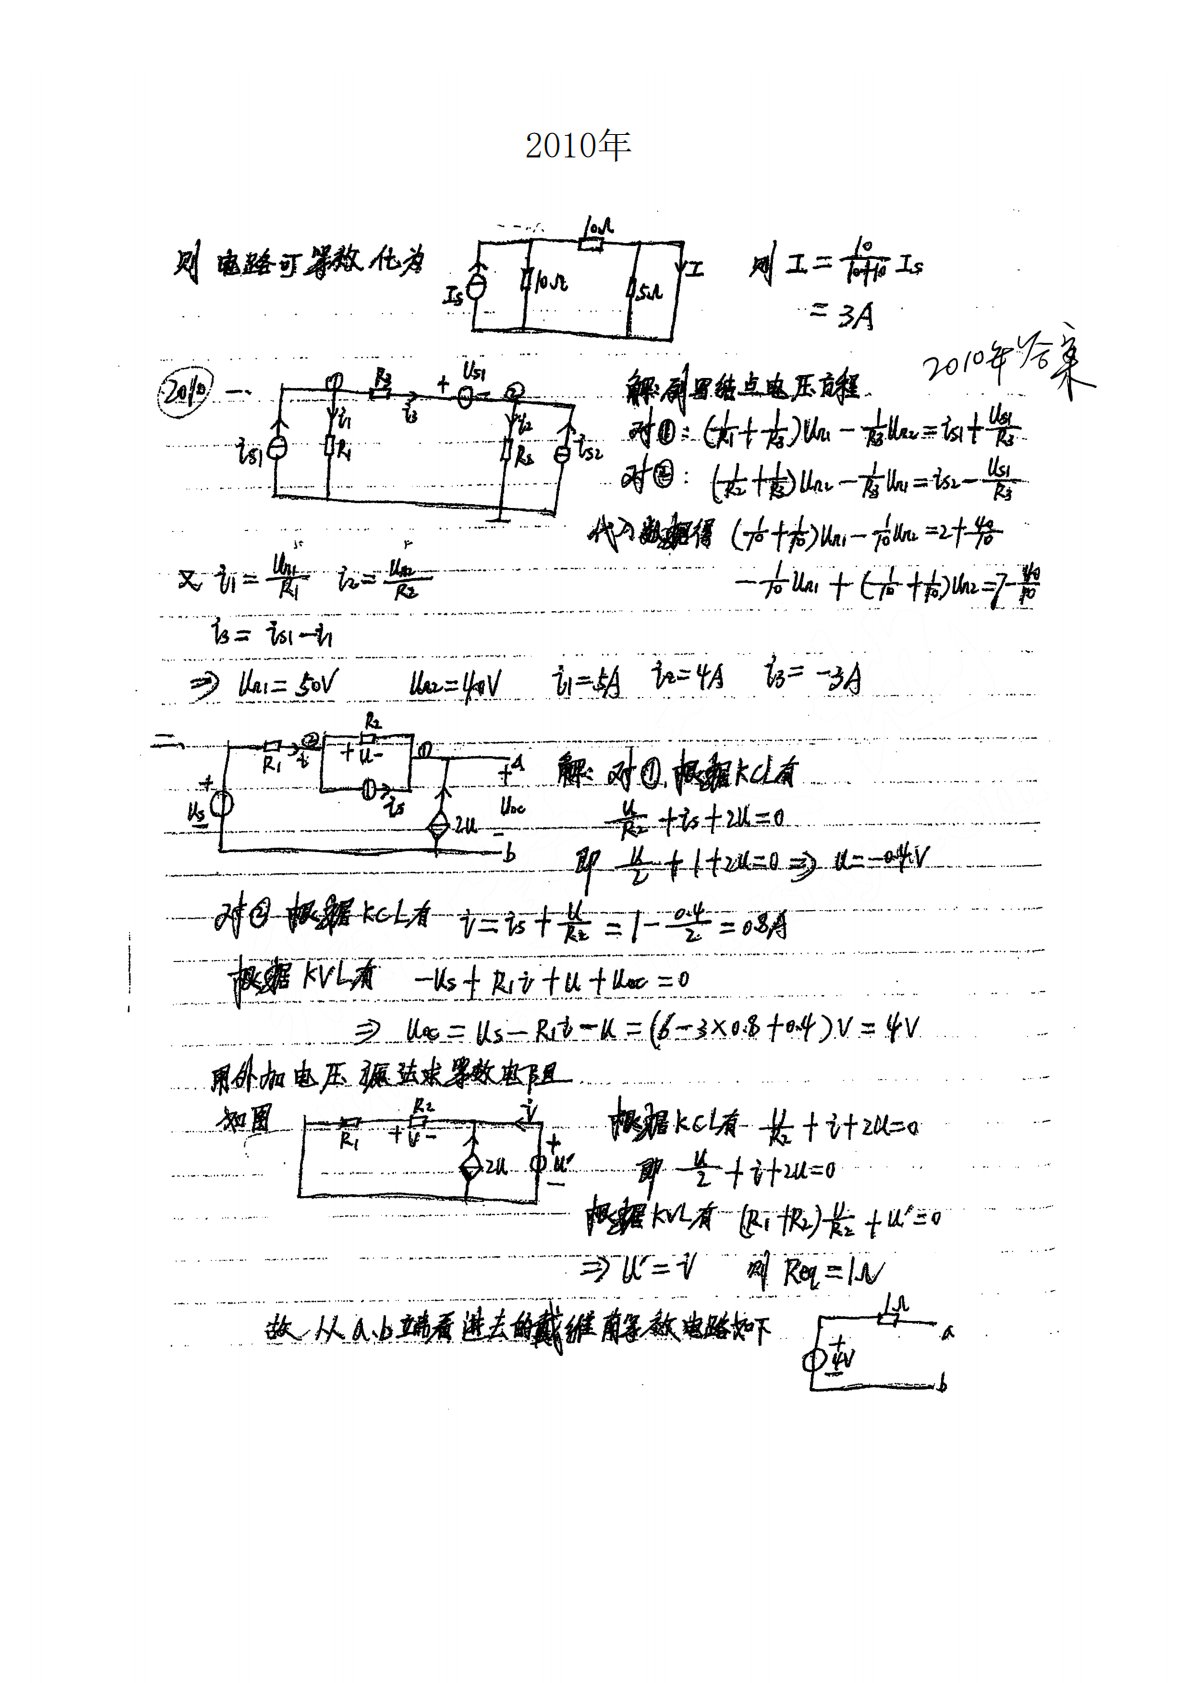 2010年
则电路可等效化为 Is 10Ω 10Ω 5Ω I 则 I = 10/(10+10) Is
= 3A
2010年答案
2010 一、 is1 ① i1 R1 R3 i3 + Us1 - ② i2 R2 is2
解:列写结点电压方程
对①: (1/R1 + 1/R3)Un1 - 1/R3 Un2 = is1 + Us1/R3
对②: (1/R2 + 1/R3)Un2 - 1/R3 Un1 = is2 - Us1/R3
代入数据得 (1/10 + 1/10)Un1 - 1/10 Un2 = 2 + 40/10
- 1/10 Un1 + (1/10 + 1/10)Un2 = 7 - 40/10
又 i1 = Un1/R1 i2 = Un2/R2
i3 = is1 - i1
⇒ Un1 = 50V Un2 = 40V i1 = 5A i2 = 4A i3 = -3A
二、 + Us - R1 i ② R2 + u - is ① 2u a + Uoc - b
解: 对①, 根据KCL有
u/R2 + is + 2u = 0
即 u/2 + 1 + 2u = 0 ⇒ u = -0.4V
对② 根据KCL有 i = is + u/R2 = 1 - 0.4/2 = 0.8A
根据KVL有 -Us + R1i + u + Uoc = 0
⇒ Uoc = Us - R1i - u = (6 - 3×0.8 + 0.4)V = 4V
用外加电压源法求等效电阻
如图 R1 R2 + u - 2u i + u' -
根据KCL有 u/R2 + i + 2u = 0
即 u/2 + i + 2u = 0
根据KVL有 (R1+R2) u/R2 + u' = 0
⇒ u' = i 则 Req = 1Ω
故从a、b端看进去的戴维南等效电路如下 1Ω a + 4V - b